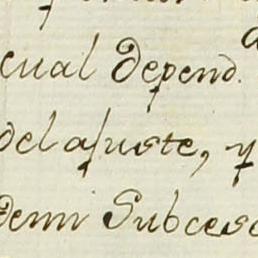 cual depend.
del ajuste, y
demi Subceso